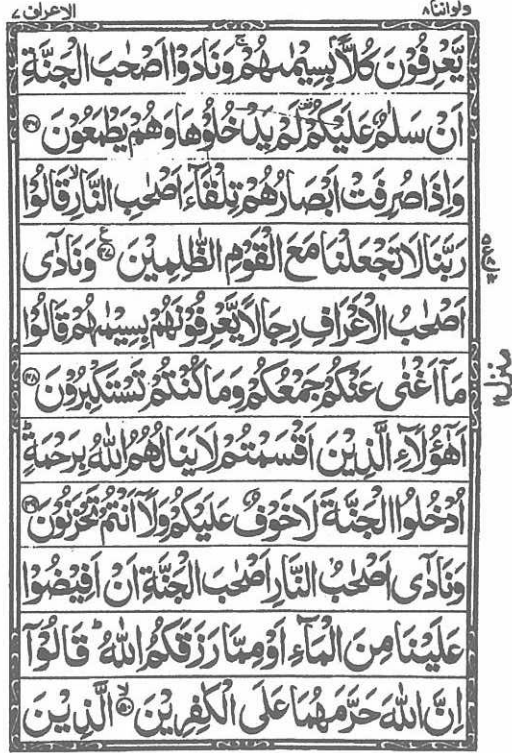 ولواننا ٨
الاعراف ٧
يَّعْرِفُوْنَ كُلًّاۢ بِسِيْمٰىهُمْ ۚ وَنَادَوْا اَصْحٰبَ الْجَنَّةِ
اَنْ سَلٰمٌ عَلَيْكُمْ ۟ لَمْ يَدْخُلُوْهَا وَهُمْ يَطْمَعُوْنَ ﴿۴۶﴾
وَاِذَا صُرِفَتْ اَبْصَارُهُمْ تِلْقَآءَ اَصْحٰبِ النَّارِ ۙ قَالُوْا
رَبَّنَا لَا تَجْعَلْنَا مَعَ الْقَوْمِ الظّٰلِمِيْنَ ﴿۴۷﴾ وَنَادٰۤى
اَصْحٰبُ الْاَعْرَافِ رِجَالًا يَّعْرِفُوْنَهُمْ بِسِيْمٰىهُمْ قَالُوْا
مَاۤ اَغْنٰى عَنْكُمْ جَمْعُكُمْ وَمَا كُنْتُمْ تَسْتَكْبِرُوْنَ ﴿۴۸﴾
اَهٰۤؤُلَآءِ الَّذِيْنَ اَقْسَمْتُمْ لَا يَنَالُهُمُ اللّٰهُ بِرَحْمَةٍ ؕ
اُدْخُلُوا الْجَنَّةَ لَا خَوْفٌ عَلَيْكُمْ وَلَاۤ اَنْتُمْ تَحْزَنُوْنَ ﴿۴۹﴾
وَنَادٰۤى اَصْحٰبُ النَّارِ اَصْحٰبَ الْجَنَّةِ اَنْ اَفِيْضُوْا
عَلَيْنَا مِنَ الْمَآءِ اَوْ مِمَّا رَزَقَكُمُ اللّٰهُ ؕ قَالُوْۤا
اِنَّ اللّٰهَ حَرَّمَهُمَا عَلَى الْكٰفِرِيْنَ ﴿۵۰﴾ۙ الَّذِيْنَ
منزل ٢